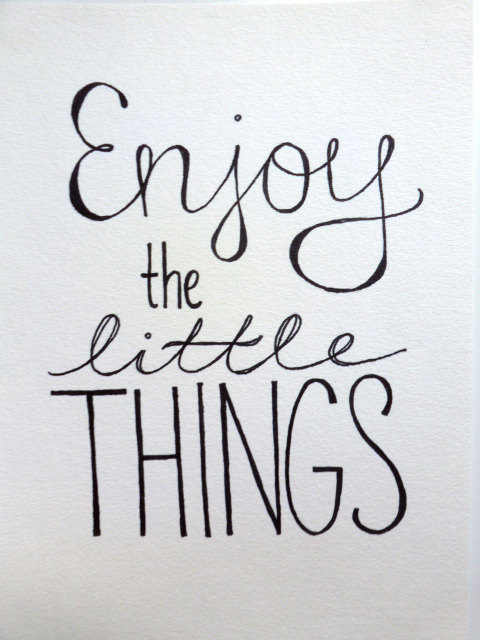 Enjoy
the
little
THINGS